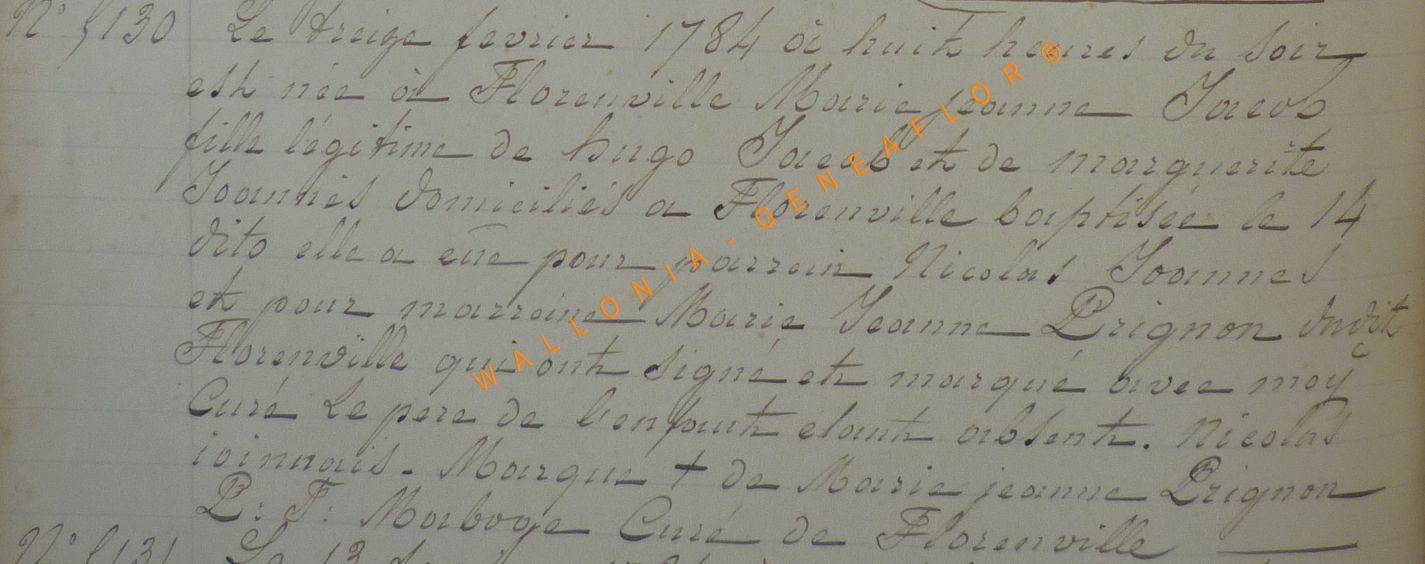 N° 5130 Le treize fevrier 1784 à huit heures du soir
est née à Florenville Marie jeanne Jacob
fille légitime de hugo Jacob et de marguerite
Joannes domiciliés a Florenville baptisée le 14
dito elle a eüe pour parrain Nicolas Joannes
et pour marraine Marie Jeanne Prignon dudit
Florenville qui ont signé et marqué avec moy
Curé Le pere de l'enfant etant absent. Nicolas
ioinnais. Marque + de Marie jeanne Prignon
P: F: Maboge Curé de Florenville
N° 5131 Le 13
WALLONIA - GENEAFLOR ®